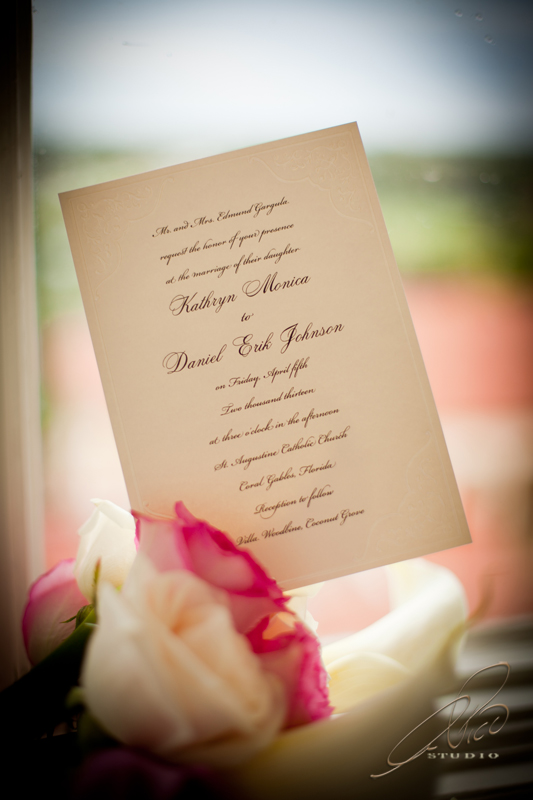 Mr. and Mrs. Edmund Gargula
request the honor of your presence
at the marriage of their daughter
Kathryn Monica
to
Daniel Erik Johnson
on Friday, April fifth
Two thousand thirteen
at three o'clock in the afternoon
St. Augustine Catholic Church
Coral Gables, Florida
Reception to follow
Villa Woodbine, Coconut Grove
Rico
STUDIO